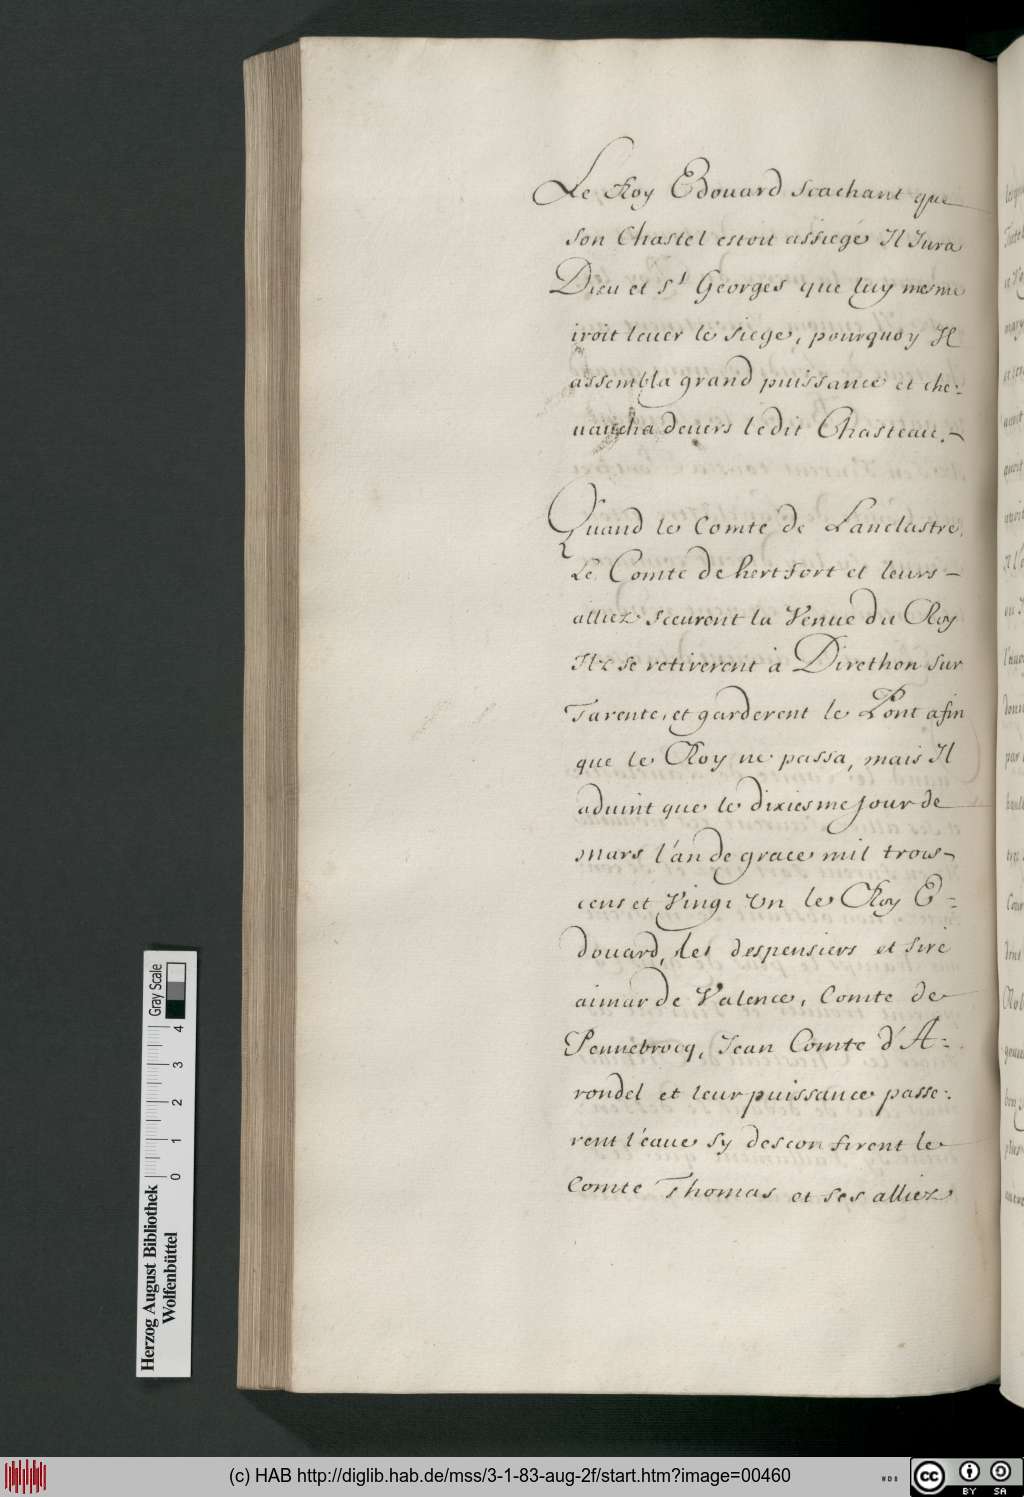 Le Roy Edouard scachant que
son Chastel estoit assiegé Il Jura
Dieu et St Georges que luy mesme
iroit leuer le siege, pourquoy Il
assembla grand puissance et che:
uaucha deuers ledit Chasteau.
Quand le Comte de Lanclastre,
Le Comte de hertfort et leurs
alliez sceurent la Venue du Roy
Ilz se retirerent à Direthon sur
Tarente, et garderent le Pont afin
que le Roy ne passa, mais Il
aduint que le dixiesme Jour de
mars l'an de grace mil trois
cens et Vingt Un le Roy E=
douard, les despensiers et sire
aimar de Valence, Comte de
Pennebrocq, Jean Comte d'A=
rondel et leur puissance passe:
rent l'eaue sy desconfirent le
Comte Thomas et ses alliez
Herzog August Bibliothek
Wolfenbüttel
0 1 2 3 4
Gray Scale
(c) HAB http://diglib.hab.de/mss/3-1-83-aug-2f/start.htm?image=00460
WDB
cc
BY SA